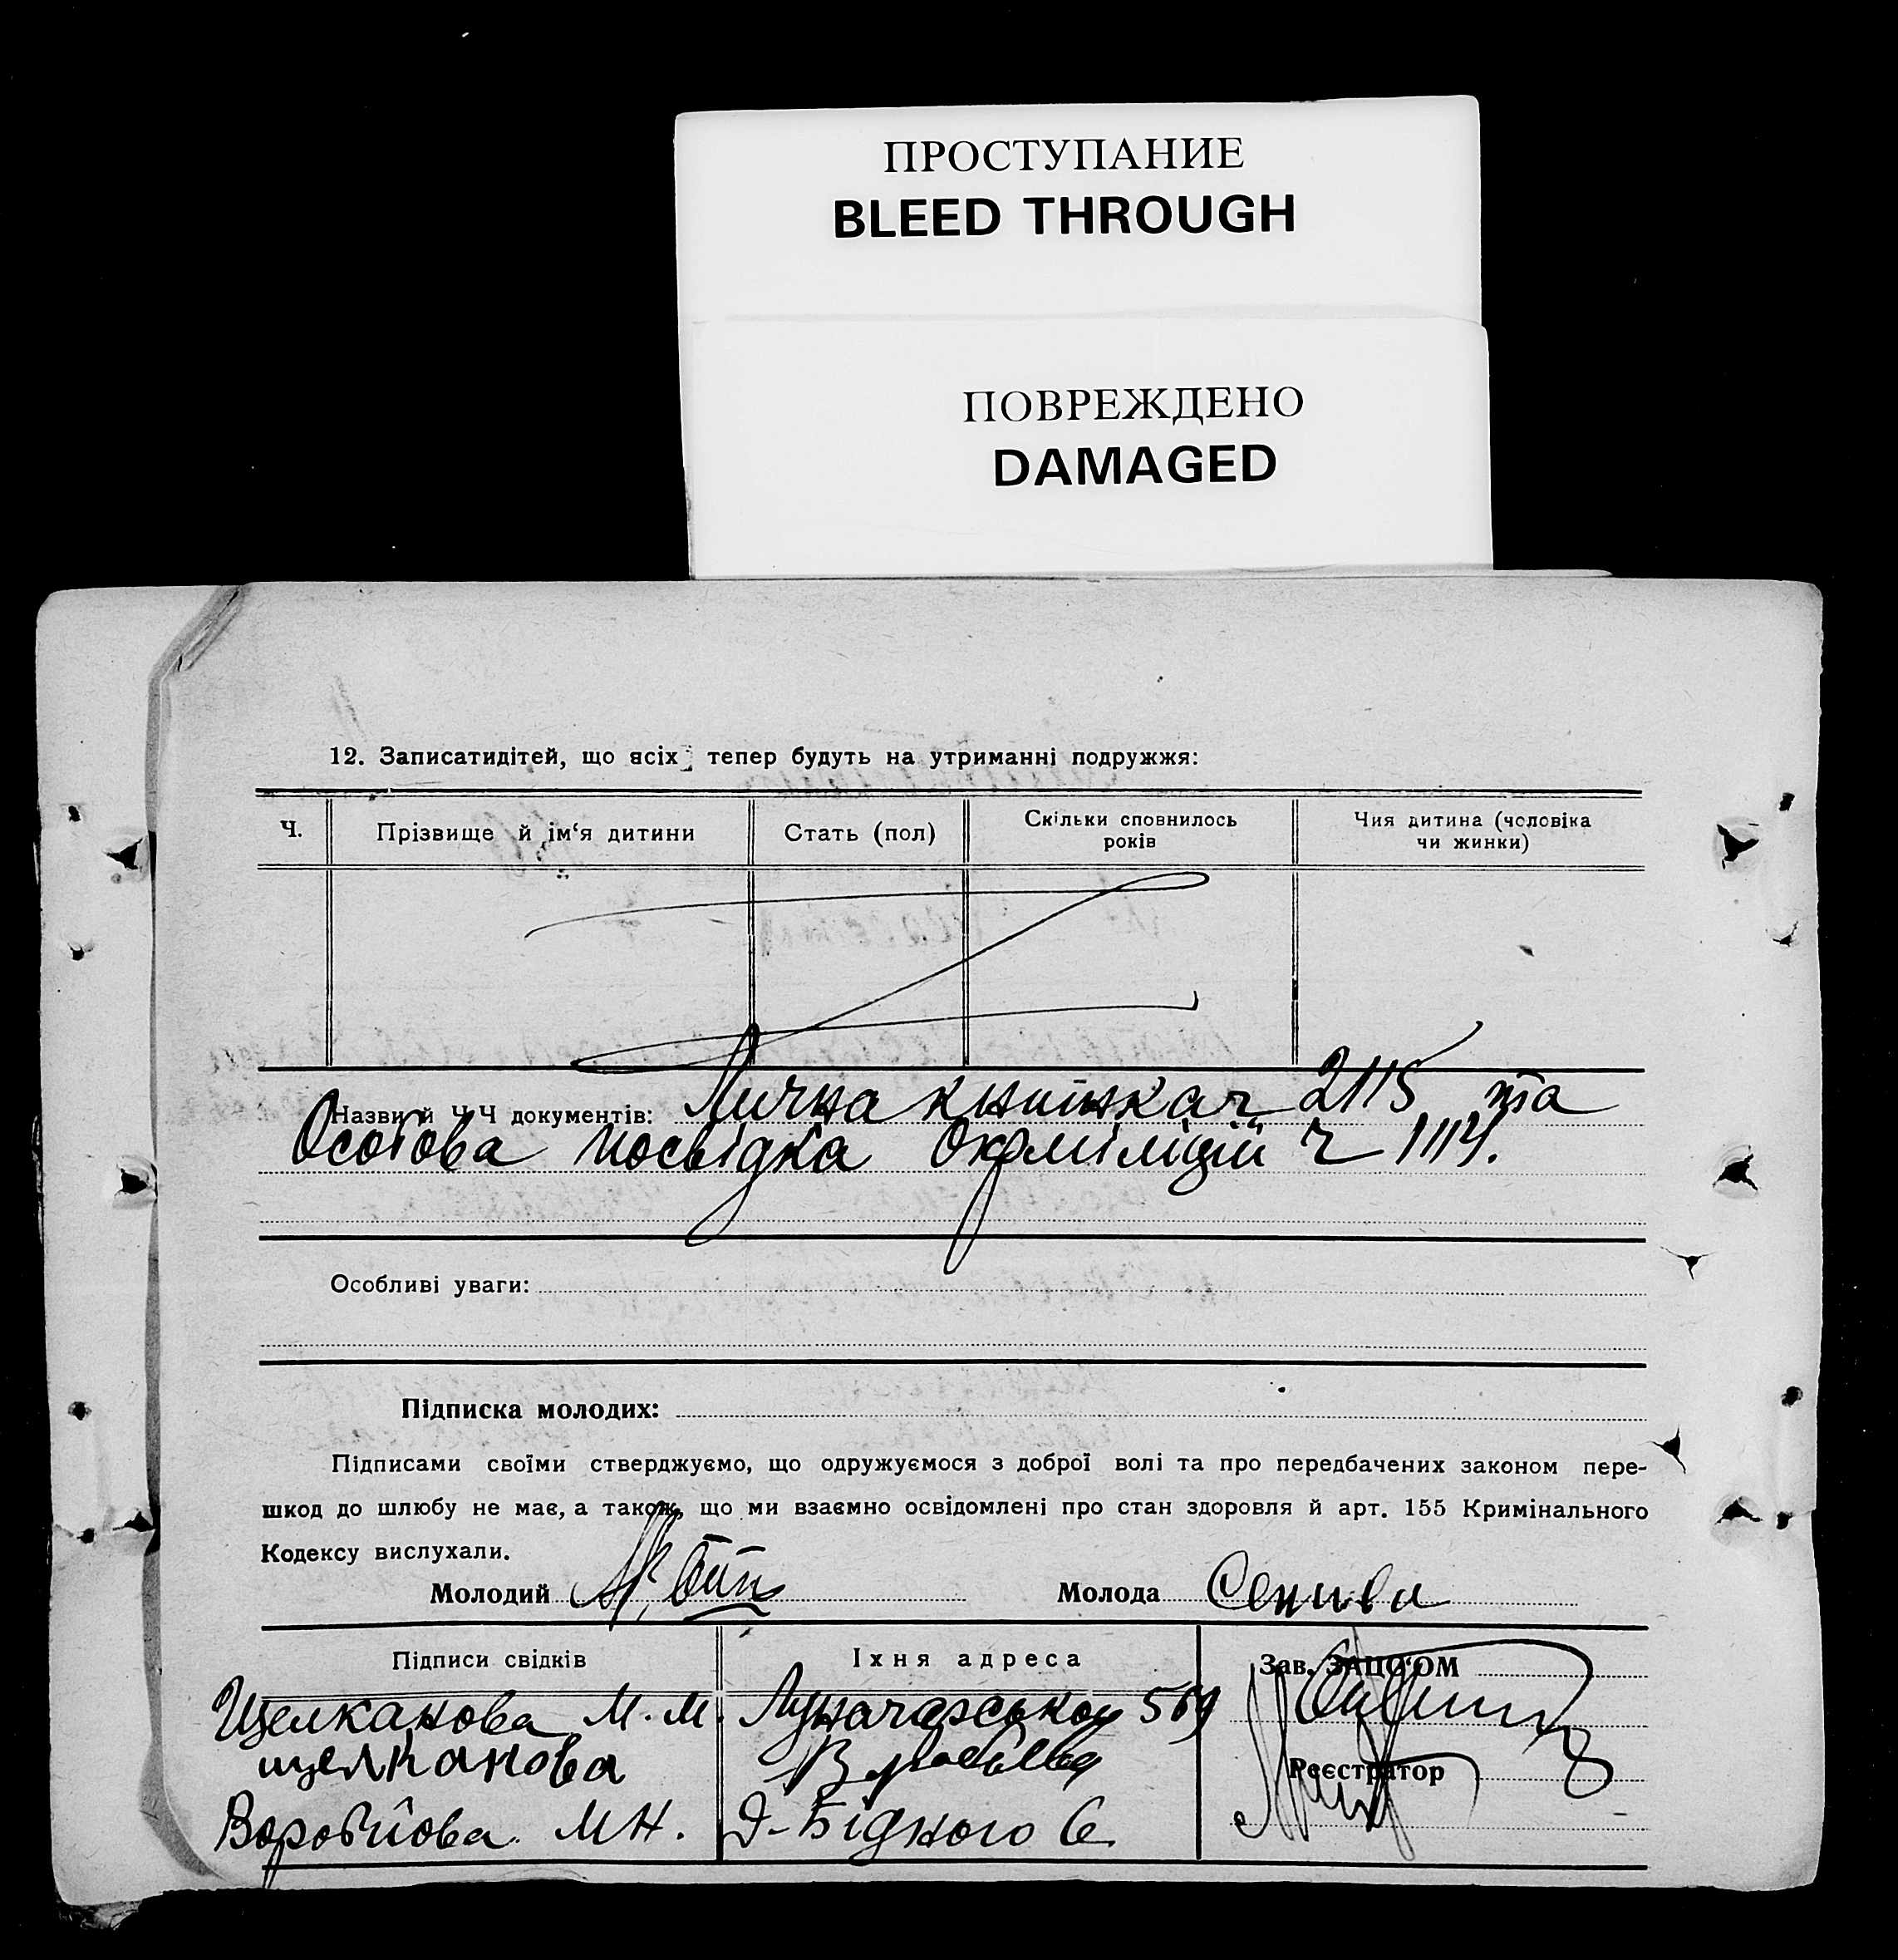 ПРОСТУПАНИЕ
BLEED THROUGH
ПОВРЕЖДЕНО
DAMAGED
12. Записатидітей, що всіх тепер будуть на утриманні подружжя:
Ч.
Прізвище й ім‘я дитини
Стать (пол)
Скільки сповнилось
років
Чия дитина (чоловіка
чи жинки)
Назви й Ч Ч документів: Лична книжка ч 2115 та
Особова посвідка Окрміліції ч 1114.
Особливі уваги:
Підписка молодих:
Підписами своїми стверджуємо, що одружуємося з доброї волі та про передбачених законом пере-
шкод до шлюбу не має, а також, що ми взаємно освідомлені про стан здоровля й арт. 155 Кримінального
Кодексу вислухали.
Молодий
Молода
Підписи свідків
Їхня адреса
Зав. ЗАЦС‘ОМ
Щелканова М.М. Луначарсько
щелканова
Реєстратор
Воробйова МН. Д-Бідного 6